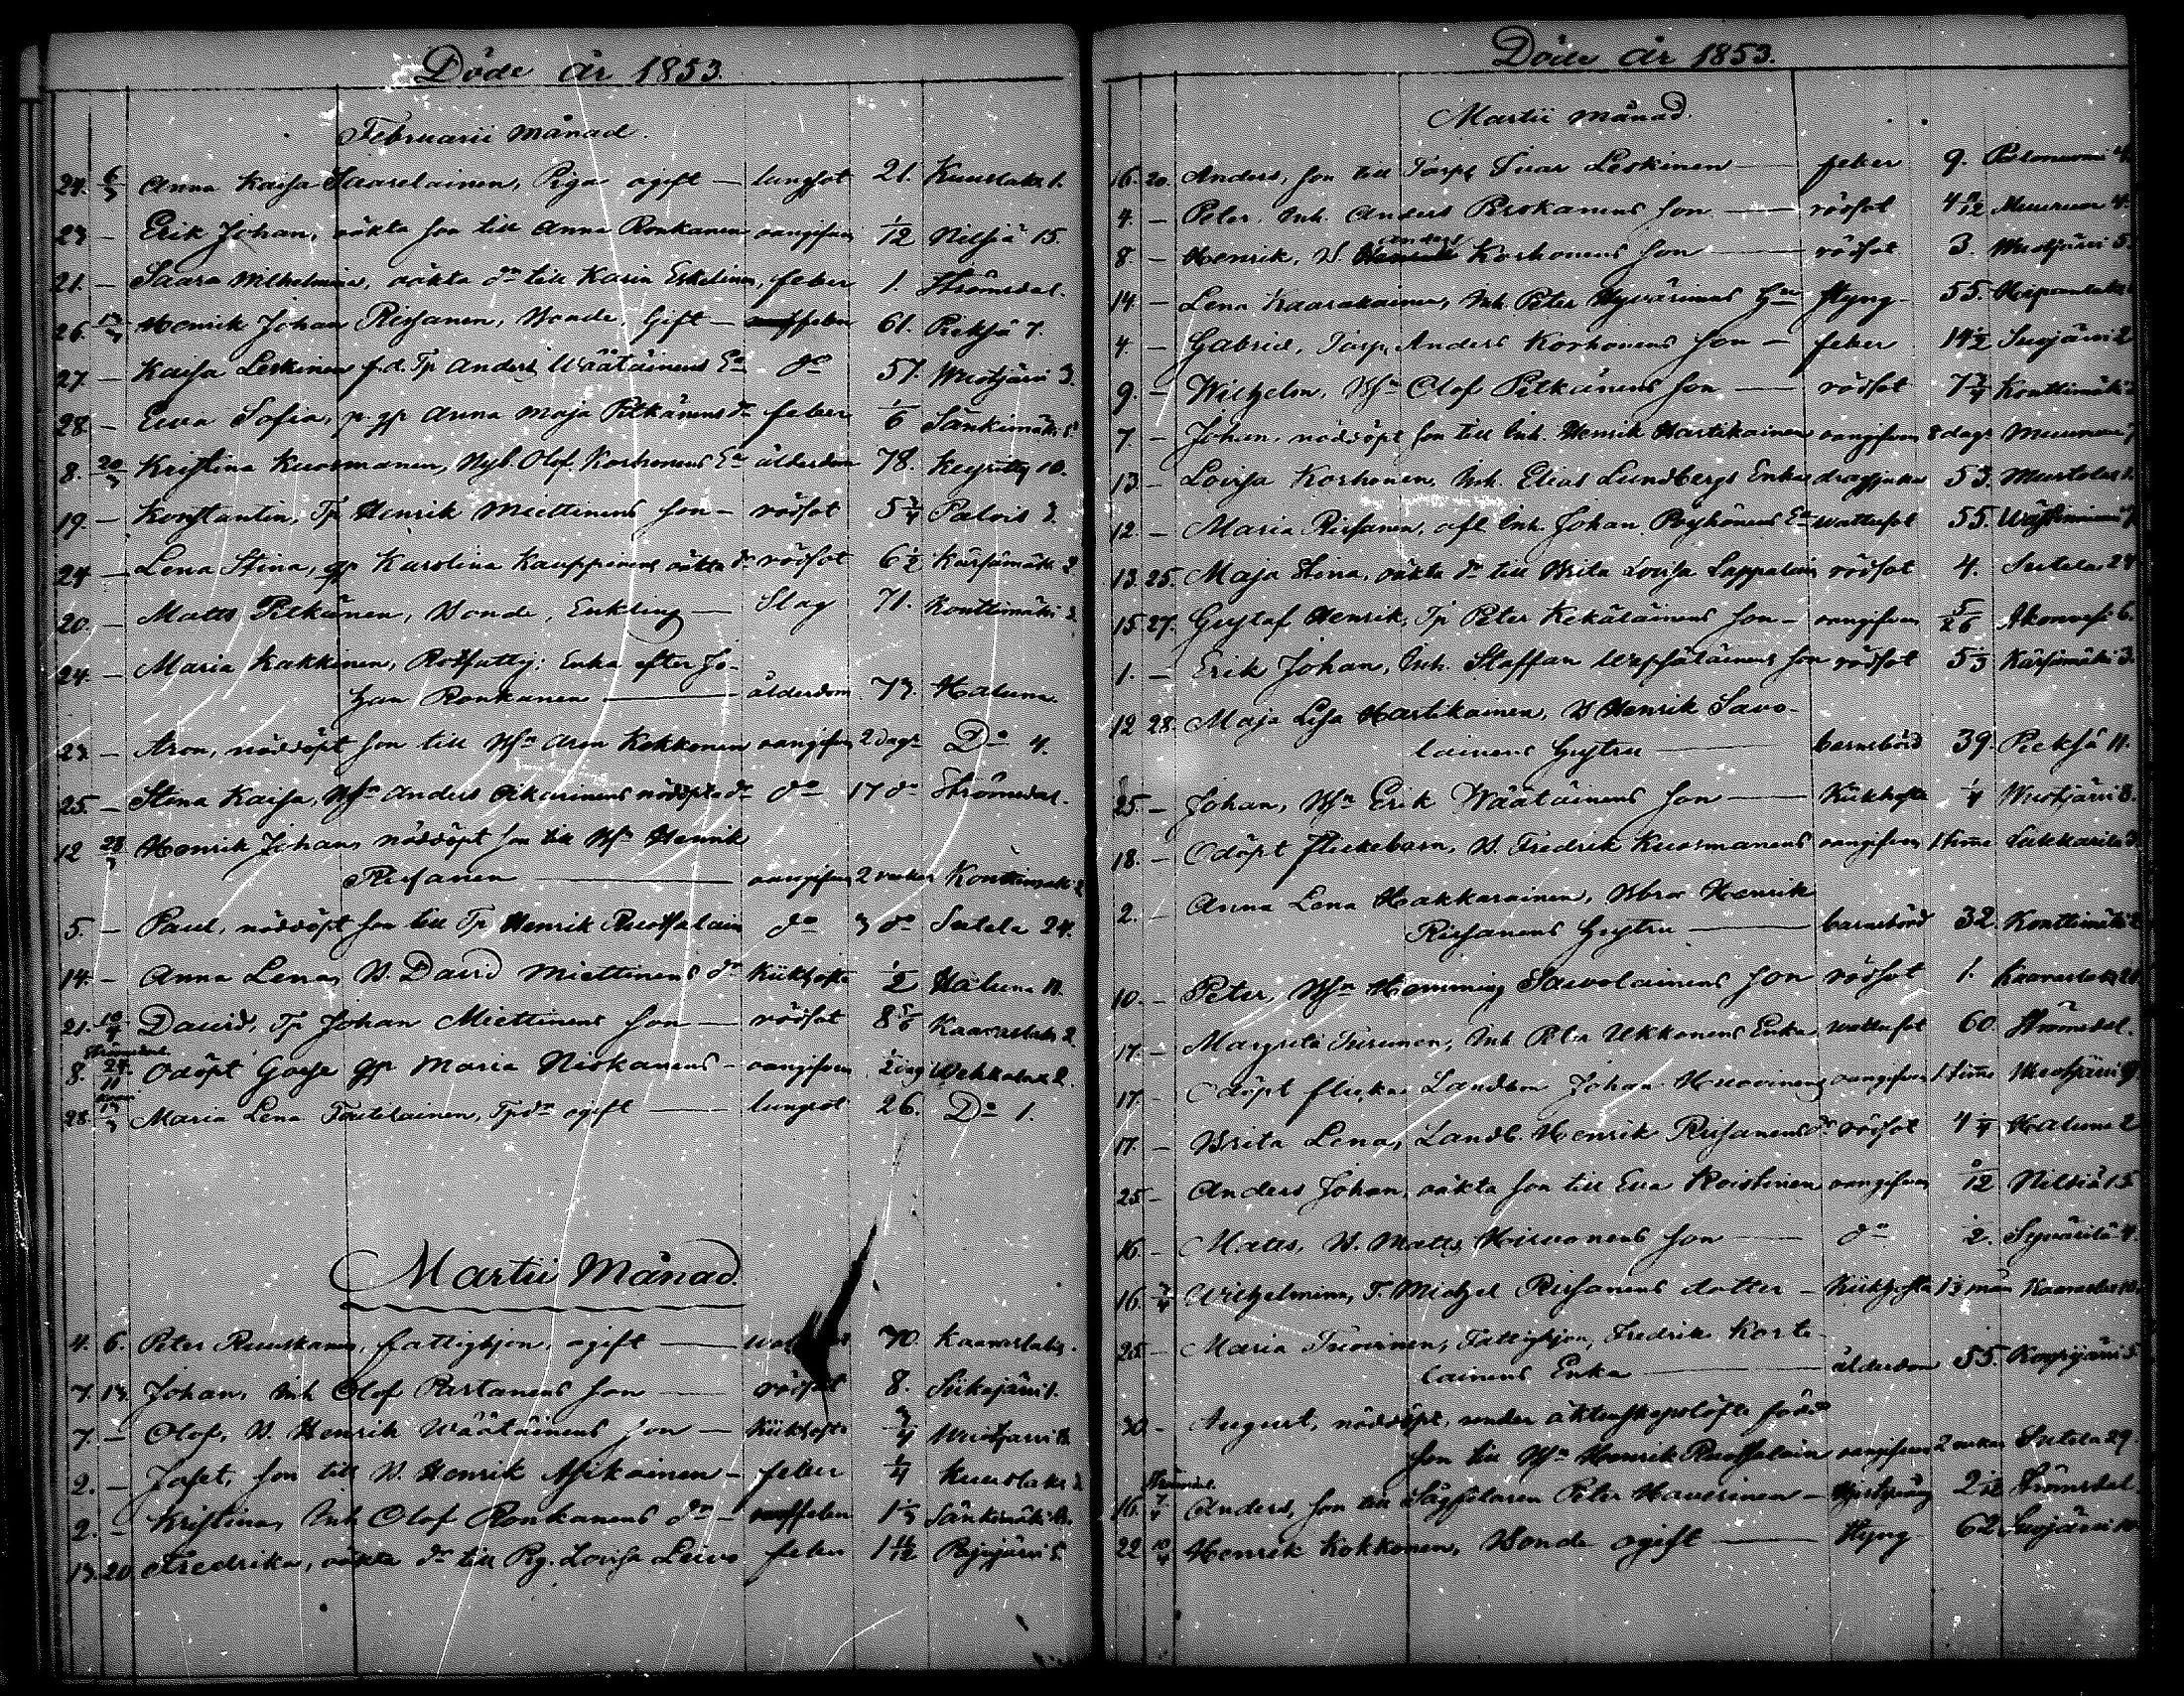 Döde år 1853.
Februarii månad.
24. 6/3 Anna Kaisa Saarelainen, Piga ogift — lungsot 21. Kuuslaks 1.
23 — Erik Johan, oäkta son till Anna Ronkanen oangifven 1/12 Nilsiä 15.
21. — Saara Wilhelmina, oäkta dr till Karin Eskelinen, feber 1. Strömsdal.
26. 13/3 Henrik Johan Rissanen, Bonde, Gift — feber 61. Pieksä 7.
27 — Kaisa Leskinen f.d. Tp Anders Wäätäinens Ea do 57. Wuotjärvi 3.
28. — Ewa Sofia, p. gp Anna Maja Pitkänens dr feber 1/6 Sänkimäki
8. 20/3 Kristina Kuosmanen, Nyb. Olof Korhonens Ea ålderdom 78. Keyritty 10.
19. — Konstantin, Tp Henrik Miettinens son — rödsot 5 3/4 Palois 3.
24 — Lena Stina, gp Karolina Kauppinens oäkta dr rödsot 6 1/2 Kärsämäki 2
20. — Matts Pitkänen, Bonde, Enkling — Slag 71. Konttimäki 2
24. — Maria Kakkinen, Rotfattig: Enka efter Jo-
han Ronkanen — ålderdom 73. Haluna
23. — Aron, nöddöpt son till Bsn Aron Kokkonen oangifven 2 dagr Do 4.
25. — Stina Kaisa, Bsn Anders Oikarinens nöddöpta dr do 17 do Strömsdal.
12 28/3 Henrik Johan, nöddöpt son till Bsn Henrik
Rissanen — oangifven 2 veckor Konttimäki 2
5. — Paul, nöddöpt son till Tp Henrik Ruotsalain do 3 do Sutela 24.
14. — Anna Lena, B. David Miettinens dr Kikhosta 1/2 Haluna 11.
21. 10/4 David, Tp Johan Miettinens son — rödsot 8 5/6 Kaaraslaks 2.
Strömsdal
8. 24/11 Odöpt Gosse gp Maria Niskanens — oangifven 1/2 dag Wehkalaks 2.
28. 13/3 Maria Lena Tautelainen, Tpdr ogift — lungsot 26. Do 1.
Martii Månad.
4. 6. Peter Ruuskanen, fattighjon, ogift — 70. Kaaraslaks.
7. 13. Johan, Inh Olof Partanens son — rödsot 8. Siikajärvi 1.
7. — Olof, B. Henrik Wäätäinens son — Kikhosta 3/4 Wuotjärvi 8.
2. — Josef, son till B. Henrik Asikainen — feber 1/4 Kuuslaks 2
2. — Kristina, Inh Olof Ronkanens dr — feber 1 1/3 Sänkimäki
13. 20 Fredrika, oäkta dr till Pig. Lovisa Leivo feber 1 11/12 Pajujärvi 5.
Döde år 1853.
Martii månad.
16. 20. Anders, son till Torp Ivar Leskinen — feber 9. Palonurmi 4.
4. — Peter, Inh. Anders Roskanens son — rödsot 4 9/12 Muuruves 4.
8 — Henrik, B. Anders Korhonens son — rödsot 3. Wuotjärvi 5.
14. — Lena Kaarakainen, Inh. Peter Hyvärinens Hu Styng 55.
4. — Gabriel, Torp. Anders Korhonens son — feber 14 1/2 Suojärvi 2
9. — Wilhelm, Bsn Olof Pitkänens son — rödsot 7 3/4 Konttimäki 2
7. — Johan, nöddöpt son till Inh. Henrik Hartikainen oangifven 8 dagr Muuruves 7
13 — Lovisa Korhonen, Inh. Elias Lundbergs Enka dragsjuka 53. Murtolaks 1.
12. — Maria Rissanen, afl. Inh. Johan Pöyhönens Ea wattusot 55. 7
13. 25. Maja Stina, oäkta dr till Brita Lovisa Lappalain rödsot 4. Sutela 24
15. 27. Gustaf Henrik, Tp Peter Kekäläinens son — oangifven 5/26 Akonvesi 6.
1. — Erik Johan, Inh. Staffan Wepsäläinens son rödsot 5 1/3 Kärsämäki 3.
12 28. Maja Lisa Hartikainen, B Henrik Savo-
lainens hustru — barnsbörd 39. Pieksä 11.
25. — Johan, Bsn Erik Wäätäinens son — Kikhosta 1/4 Wuotjärvi 8.
18. — Odöpt flickebarn, B. Fredrik Kuosmanens oangifven 1 timme Lukkarila 3
2. — Anna Lena Hakkarainen, Bbror Henrik
Rissanens hustru — barnsbörd 32. Konttimäki 2
10. — Peter, Bsn Hemming Sawolainens son rödsot 1. Kaaraslaks 21
17. — Margreta Turunen, Inh. Peter Ukkonens Enka wattusot 60. Strömsdal.
17. — Odöpt flicka Landbon Johan Huovinens oangifven 1 timme Wuotjärvi 9
17. — Brita Lena, Landb. Henrik Rissanens dr rödsot 4 1/4 Haluna 2
25 — Anders Johan, oäkta son till Eva Koistinen oangifven 2/12 Nilsiä 15
16. — Matts, B. Matts Hirvonens son — do 1/2. Syväriläx 4.
16. 3/4 Wilhelmina, T. Michel Rissanens dotter — Kikhosta 1 1/2 mån Kaaraslaks 10.
25. — Maria Tuovinen, Fattighjon, Fredrik Korte-
lainens Enka — ålderdom 55. Koysjärvi 5
30 — August, nöddöpt, under äktenskapslöfte född
son till Bsn Henrik Ruotsalain oangifven 2 veckor Sutela 29.
Strömsdal.
16. 7/4 Anders, son till Sågställaren Peter Haverinen — 2 1/12 Strömsdal
22 10/4 Henrik Kokkonen, Bonde ogift — Styng 62 Suojärvi 10